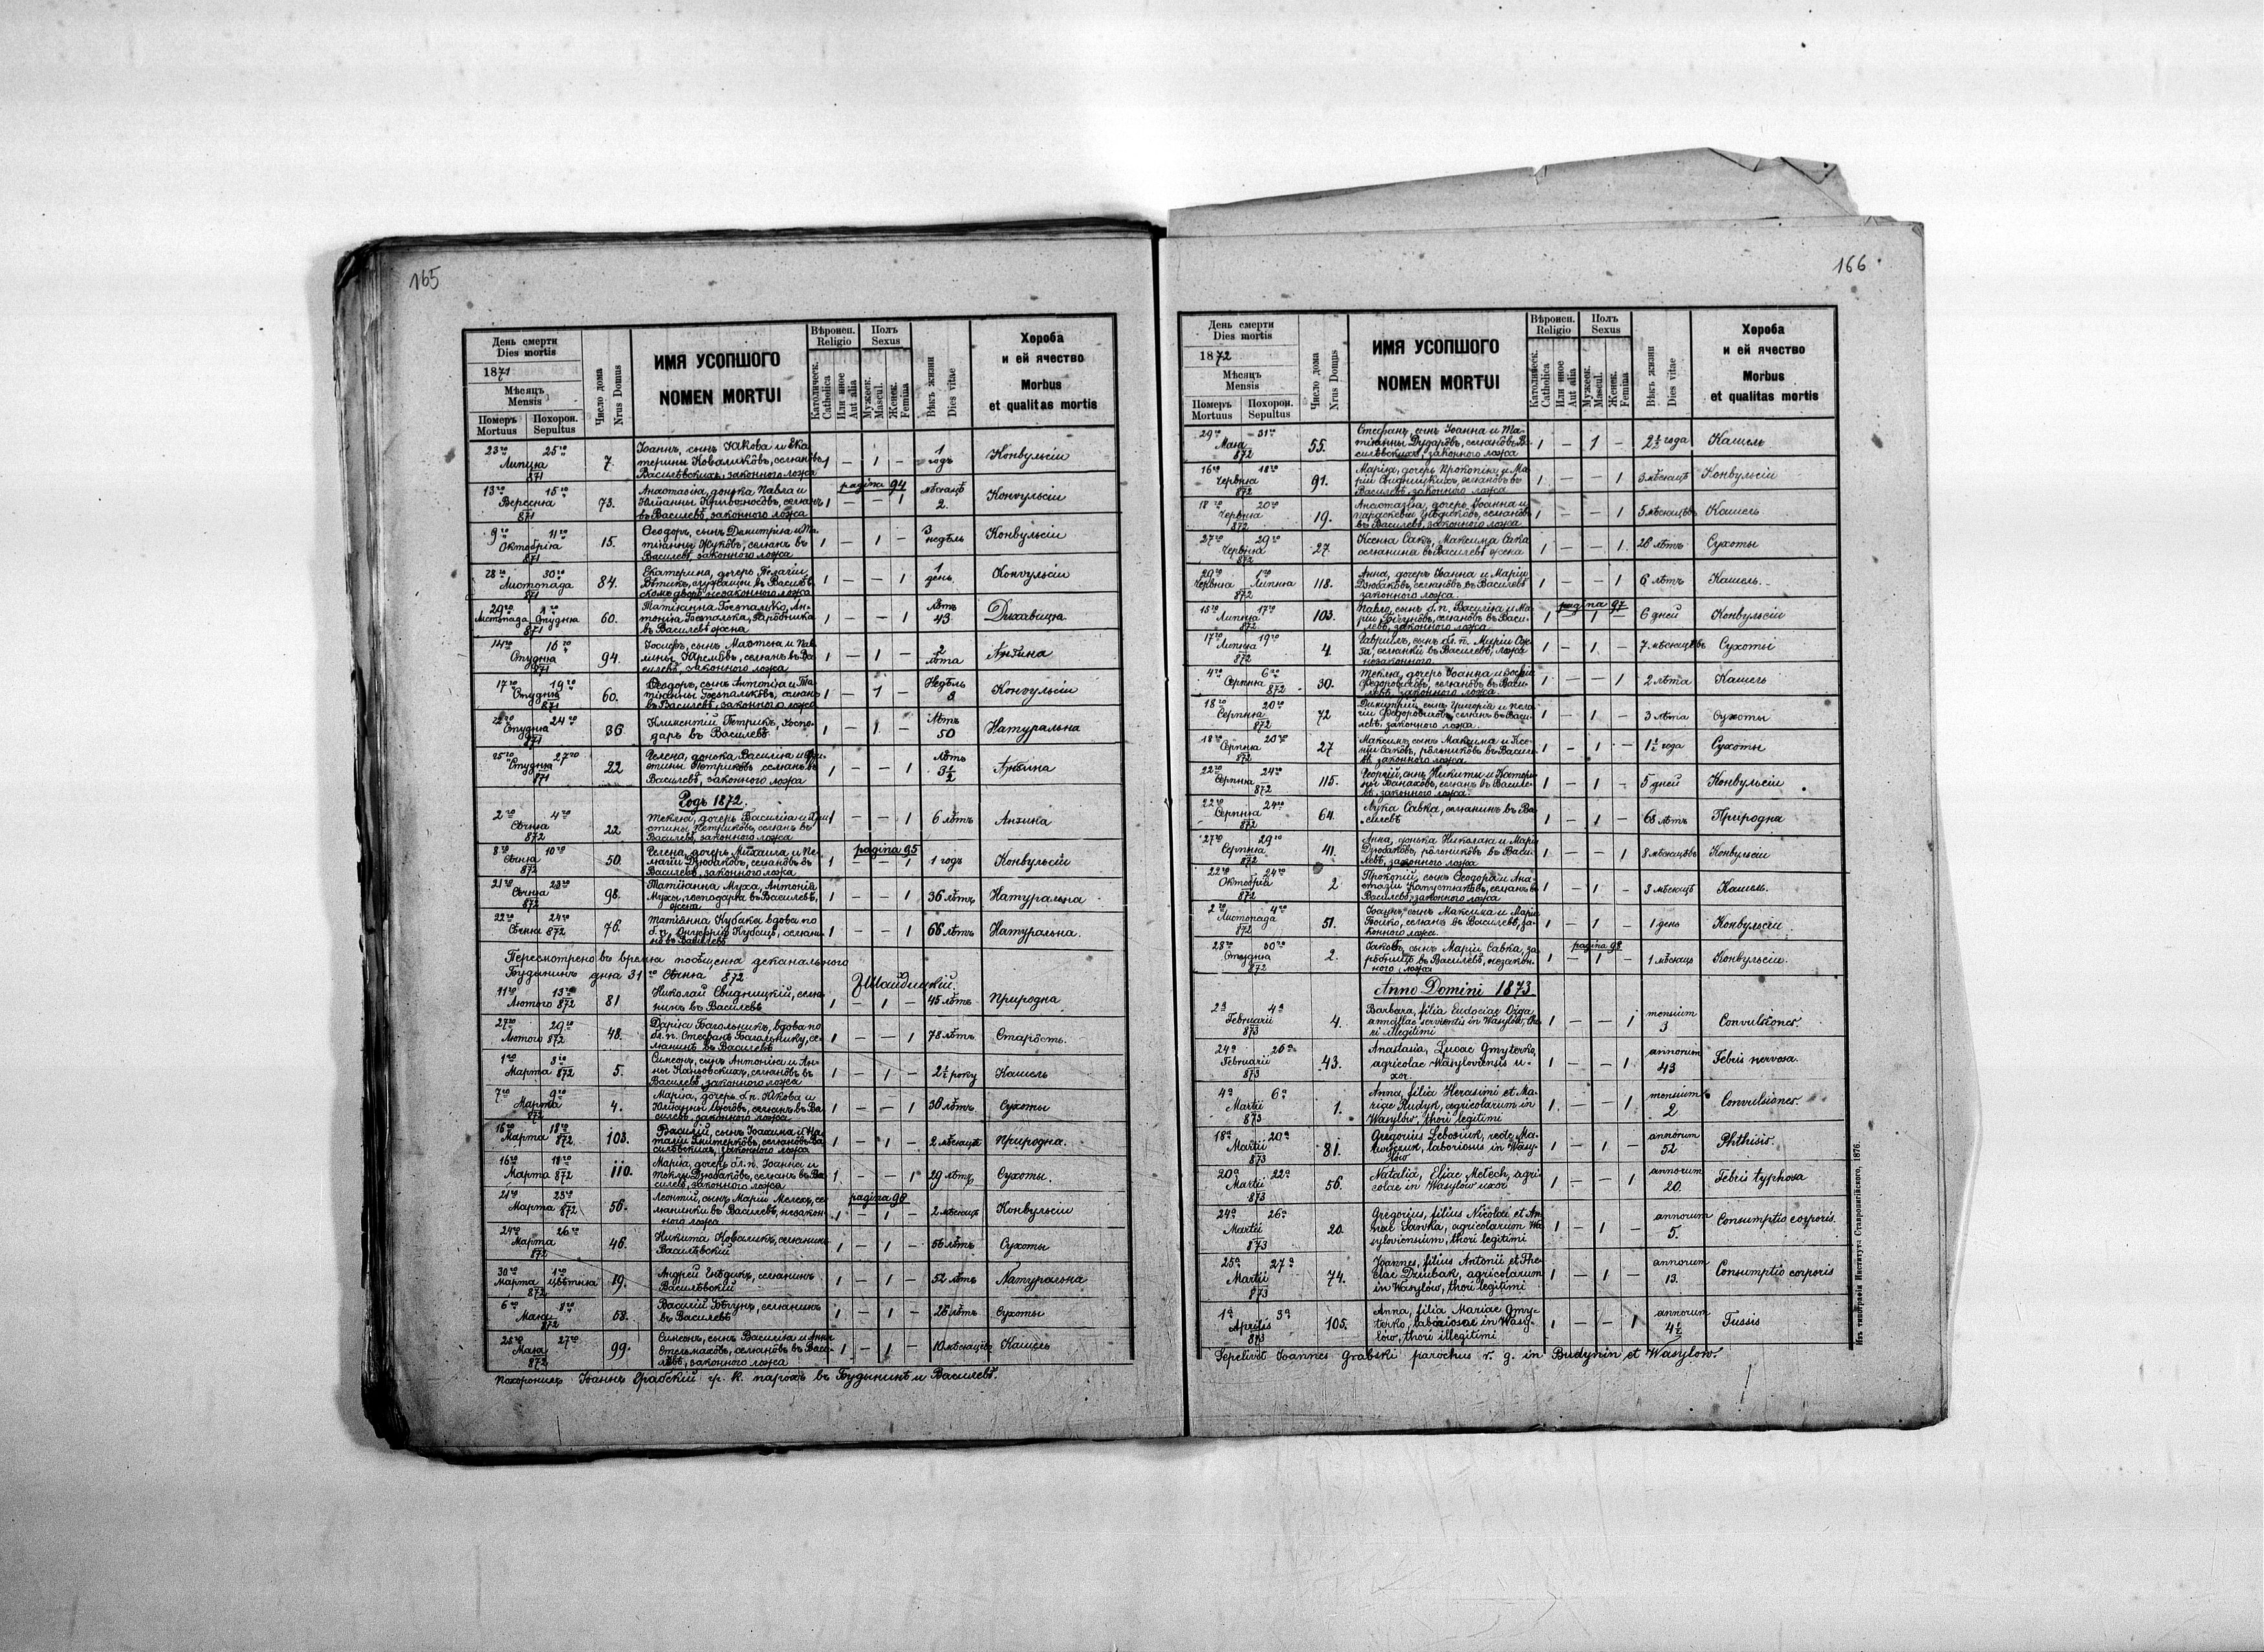 165
День смерти
Dies mortis
1871
Мѣсяцъ
Mensis
Померъ Похорон.
Mortuus Sepultus
Число дома
Nrus Domus
ИМЯ УСОПШОГО
NOMEN MORTUI
Вѣроисп.
Religio
Католическ.
Catholica
Или иное
Aut alia
Полъ
Sexus
Мужеск.
Mascul.
Женск.
Femina
Вѣкъ жизни
Dies vitae
Хороба
и ей ячество
Morbus
et qualitas mortis
23го 25го Липця 871 7. Іоаннъ, сынъ Якова и Ека
терины Коваликôвъ, селянъ
Василѣвскихъ, законного ложа 1 – 1 – 1 годъ Конвульсіи
pagina 94
13го 15го Вересня 871 73. Анастасія, донька Павла и
Юліанны Кривоносôвъ, селянъ
въ Василевѣ, законного ложа 1 – – 1 мѣсяцѣ 2. Конвульсіи
9го 11го Октобрія 871 15. Ѳеодоръ, сынъ Димитрія и Та
тіянны Жукôвъ, селянъ въ
Василевѣ, законного ложа 1 – 1 – 3 недѣль Конвульсіи
28го 30го Листопада 871 84. Екатерина, дочерь Пелагіи
служащои въ Василѣв
скомъ дворѣ незаконного ложа 1 – – 1 1 день Конвульсіи
29го Листопада Студня 871 60. Татіянна Ан-
тонія заробника
въ Василевѣ жена 1 – – 1 лѣтъ 43 Дыхавиця
14го 16го Студня 871 94. Іосифъ, сынъ Мартина и Пав
лины селянъ въ Ва
силевѣ, законного ложа 1 – 1 – 2 лѣта Ангина
17го 19го Студня 871 60. Ѳеодоръ, сынъ Антонія и Та
тіянны селянъ
въ Василевѣ, законного ложа 1 – 1 – Недѣль 3 Конвульсіи
22го 24го Студня 871 36 Климентій Петрикъ, госпо-
дарь въ Василевѣ 1 – 1 – Лѣтъ 50 Натуральна
25го 27го Студня 871 22 Елена, донька Василія и Хри
стины Петрикôвъ селянъ въ
Василевѣ, законного ложа 1 – – 1 лѣтъ 3½ Ангина
Годъ 1872.
2го 4го Сѣчня 872 22 Текля, дочерь Василія и Хри
стины Петрикôвъ, селянъ въ
Василевѣ, законного ложа 1 – – 1 6 лѣтъ Ангина
pagina 95
8го 10го Сѣчня 872 50. Елена, дочерь Михаила и Пе-
лагіи Дзюбакôвъ, селянôвъ въ
Василевѣ, законного ложа 1 – – 1 1 годъ Конвульсіи
21го 23го Сѣчня 872 98. Татіянна Муха, Антонія
Мухи, господаря въ Василевѣ,
жена 1 – – 1 36 лѣтъ Натуральна
22го 24го Сѣчня 872 76. Татіянна Кубаки вдова по
б. п. Онуфрію селяни-
нѣ въ Василевѣ 1 – – 1 66 лѣтъ Натуральна.
Пересмотрено въ время посѣщенія деканального
Будынинъ дня 31го Сѣчня 872
11го 13го Лютого 872 81 Николай Свидницкій, селя-
нинъ въ Василевѣ 1 – 1 – 45 лѣтъ Природна
27го 29го Лютого 872 48. Дарія Багольникъ, вдова по
бл. п. Стефанѣ Багольнику, се-
лянинѣ въ Василевѣ 1 – – 1 78 лѣтъ Старôсть.
1го 3го Марта 872 5. Симеонъ, сынъ Антонія и Ан-
ны селянôвъ въ
Василевѣ, законного ложа 1 – 1 – 2½ року Кашель
7го 9го Марта 872 4. Марія, дочерь б. п. Якова и
Юліанны селянъ въ Ва
силевѣ, законного ложа 1 – – 1 36 лѣтъ Сухоты
16го 18го Марта 872 103. Василій, сынъ Іоакима и На
таліи Гмитеркôвъ, селянôвъ Ва
силѣвскихъ, законного ложа 1 – 1 – 2 мѣсяцѣ Природна.
16го 18го Марта 872 110. Марія, дочерь бл. п. Іоанна и
Теклы Дзюбакôвъ, селянъ въ Ва
силевѣ, законного ложа 1 – – 1 29 лѣтъ Сухоты.
21го 23го Марта 872 56. Леонтій, сынъ Маріи Мелехъ, се
лянинки въ Василевѣ, незакон-
ного ложа 1 – 1 – 2 мѣсяцѣ Конвульсіи
24го 26го Марта 872 46. Никита Коваликъ, селянинъ
Василѣвскій 1 – 1 – 56 лѣтъ Сухоты
30го Марта 1го Цвѣтня 872 19. Андрей Гнѣдикъ, селянинъ
Василѣвскій 1 – 1 – 52 лѣтъ Натуральна
6го 8го Мая 872 58. Василій Бѣгунъ, селянинъ
въ Василевѣ 1 – 1 – 26 лѣтъ Сухоты
25го 27го Мая 872 99. Симеонъ, сынъ Василія и Анны
Стельмахôвъ, селянôвъ въ Васи-
левѣ, законного ложа 1 – 1 – 10 мѣсяцевъ Кашель
Похоронилъ Іоаннъ Грабскій гр. к. парохъ въ Будынинѣ и Василевѣ.
166
День смерти
Dies mortis
1872
Мѣсяцъ
Mensis
Померъ Похорон.
Mortuus Sepultus
Число дома
Nrus Domus
ИМЯ УСОПШОГО
NOMEN MORTUI
Вѣроисп.
Religio
Католическ.
Catholica
Или иное
Aut alia
Полъ
Sexus
Мужеск.
Mascul.
Женск.
Femina
Вѣкъ жизни
Dies vitae
Хороба
и ей ячество
Morbus
et qualitas mortis
29го 31го Мая 872 55. Стефанъ, сынъ Іоанна и Та-
тіянны Дударôвъ, селянôвъ Ва
силѣвскихъ, законного ложа 1 – 1 – 2½ года Кашель
16го 18го Червня 872 91. Марія, дочерь Прокопія и Ма
ріи Свидницкихъ, селянôвъ въ
Василевѣ, законного ложа 1 – – 1 3 мѣсяцѣ Конвульсіи
18го 20го Червня 872 19. Анастазія, дочерь Іоанна и
Параскевіи Гнѣдикôвъ, селянôвъ
въ Василевѣ, законного ложа 1 – – 1 5 мѣсяцѣвъ Кашель
27го 29го Червня 872 27. Ксенія Сакъ, Максима Сака
селянина въ Василевѣ жена 1 – – 1 26 лѣтъ Сухоты
29го Червня 1го Липня 872 118. Анна, дочерь Іоанна и Маріи
Дзюбакôвъ, селянôвъ въ Василевѣ
законного ложа. 1 – – 1 6 лѣтъ Кашель.
pagina 97
15го 17го Липня 872 103. Павло, сынъ б. п. Василія и Ма
ріи Бѣгунôвъ, селянôвъ въ Васи-
левѣ, законного ложа 1 – 1 – 6 дней Конвульсіи
17го 19го Липня 872 4. Гавриилъ, сынъ бл. п. Маріи
селянки въ Василевѣ, ложа
незаконного 1 – 1 – 7 мѣсяцѣвъ Сухоты
4го 6го Серпня 872 30. Текля, дочерь Іоанна и Софіи
Федоровичôвъ, селянôвъ въ Васи-
левѣ, законного ложа 1 – – 1 2 лѣта Кашель
18го 20го Серпня 872 72 Димитрій, сынъ Григорія и Пела
гіи Федоровичôвъ, селянъ въ Васи-
левѣ, законного ложа. 1 – 1 – 3 лѣта Сухоты
18го 20го Серпня 872 27 Максимъ, сынъ Максима и Ксе-
ніи Сакôвъ, рôльникôвъ въ Василе-
вѣ законного ложа 1 – 1 – 1½ года Сухоты
22го 24го Серпня 872 115. Георгій, сынъ Никиты и Катери-
ны селянъ въ Василе-
вѣ, законного ложа. 1 – 1 – 5 дней Конвульсіи
22го 24го Серпня 872 64. Лука Савка, селянинъ въ Ва-
силевѣ 1 – 1 – 68 лѣтъ Природна
27го 29го Серпня 872 41. Анна, донька Николая и Маріи
Дзюбакôвъ, рôльникôвъ въ Васи-
левѣ, законного ложа 1 – – 1 8 мѣсяцѣвъ Конвульсіи
22го 24го Октобрія 872 2. Прокопій, сынъ Ѳеодора и Ана-
стазіи Капустякôвъ, селянъ въ
Василевѣ, законного ложа 1 – 1 – 3 мѣсяцѣ Кашель.
2го 4го Листопада 872 51. Іоаннъ, сынъ Максима и Маріи
Бойко, селянъ въ Василевѣ, за-
конного ложа. 1 – 1 – 1 день Конвульсіи
pagina 98
28го 30го Студня 872 2. Яковъ, сынъ Маріи Савка, за-
рôбницѣ въ Василевѣ, незакон-
ного ложа 1 – 1 – 1 мѣсяцъ Конвульсіи.
Anno Domini 1873
2a 4a Februarii 873 4. Barbara, filia Eudociae
ancillae servientis in Wasylów, tho
ri illegitimi 1 – – 1 mensium 3 Convulsiones.
24a 26a Februarii 873 43. Anastasia, Lucae Gmyterko,
agricolae Wasyloviensis u-
xor. 1 – – 1 annorum 43 Febris nervosa.
4a 6a Martii 873 1. Anna, filia Herasimi et Ma-
riae Rudyk, agricolarum in
Wasylów, thori legitimi 1 – – 1 mensium 2. Convulsiones.
18a 20a Martii 873 81. Gregorius Lebosiuk, recte
laboriosus in Wasy-
lów 1 – 1 – annorum 52 Phthisis.
20a 22a Martii 873 56. Natalia, Eliae Melech, agri-
colae in Wasylów uxor 1 – – 1 annorum 20. Febris typhosa
24a 26a Martii 873 20. Gregorius, filius Nicolai et An
nae Sawka, agricolarum Wa
syloviensium, thori legitimi 1 – 1 – annorum 5. Consumptio corporis.
25a 27a Martii 873 74. Joannes, filius Antonii et The-
clae Dziubak, agricolarum
in Wasylów, thori legitimi 1 – 1 – annorum 13. Consumptio corporis
1a 3a Aprilis 873 105. Anna, filia Mariae Gmy-
terko, laboriosae in Wasy-
lów, thori illegitimi 1 – – 1 annorum 4½ Tussis
Sepelivit Joannes Grabski parochus r. g. in Budynin et Wasylow.
Изъ типографіи Института Ставропигійского, 1876.